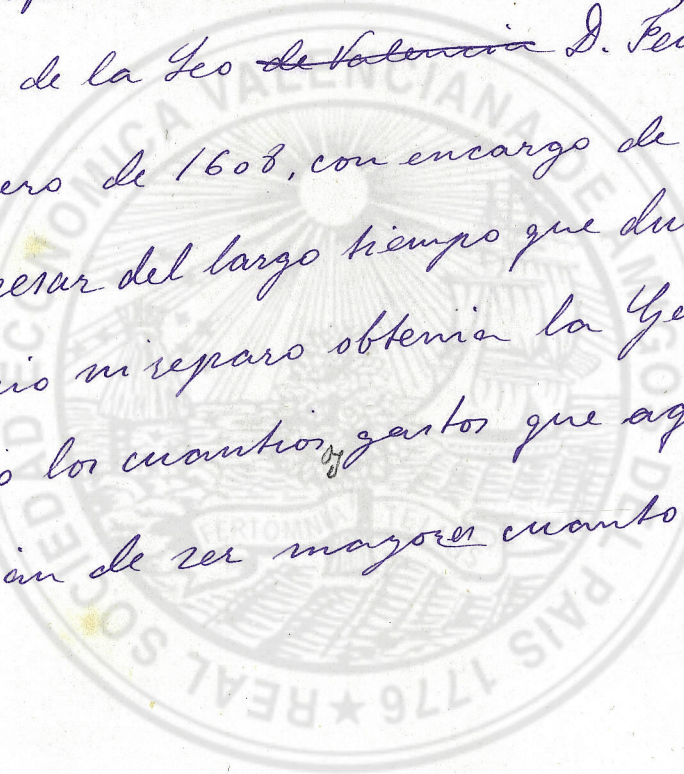 de la Seo de Valencia D. Fe
ero de 1608, con encargo de
pesar del largo tiempo que du
cio ni reparo obtenia la Ge
o los cuantiosos gastos que ag
ian de ser mayores cuanto
REAL SOCIEDAD ECONOMICA VALENCIANA DE AMIGOS DEL PAIS 1776 ★